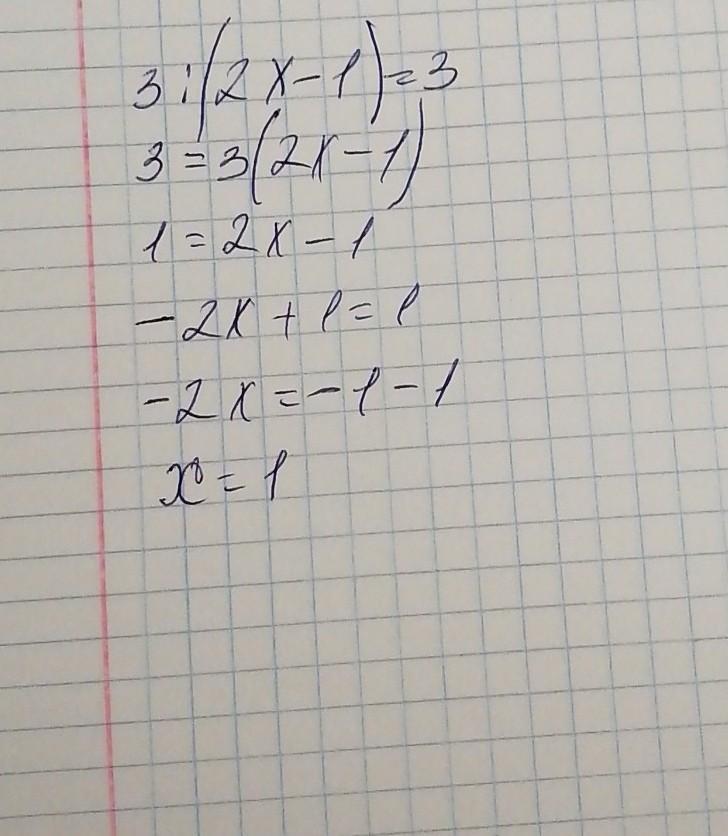 3:(2x-1)=3
3=3(2x-1)
1=2x-1
-2x+1=1
-2x=-1-1
x=1